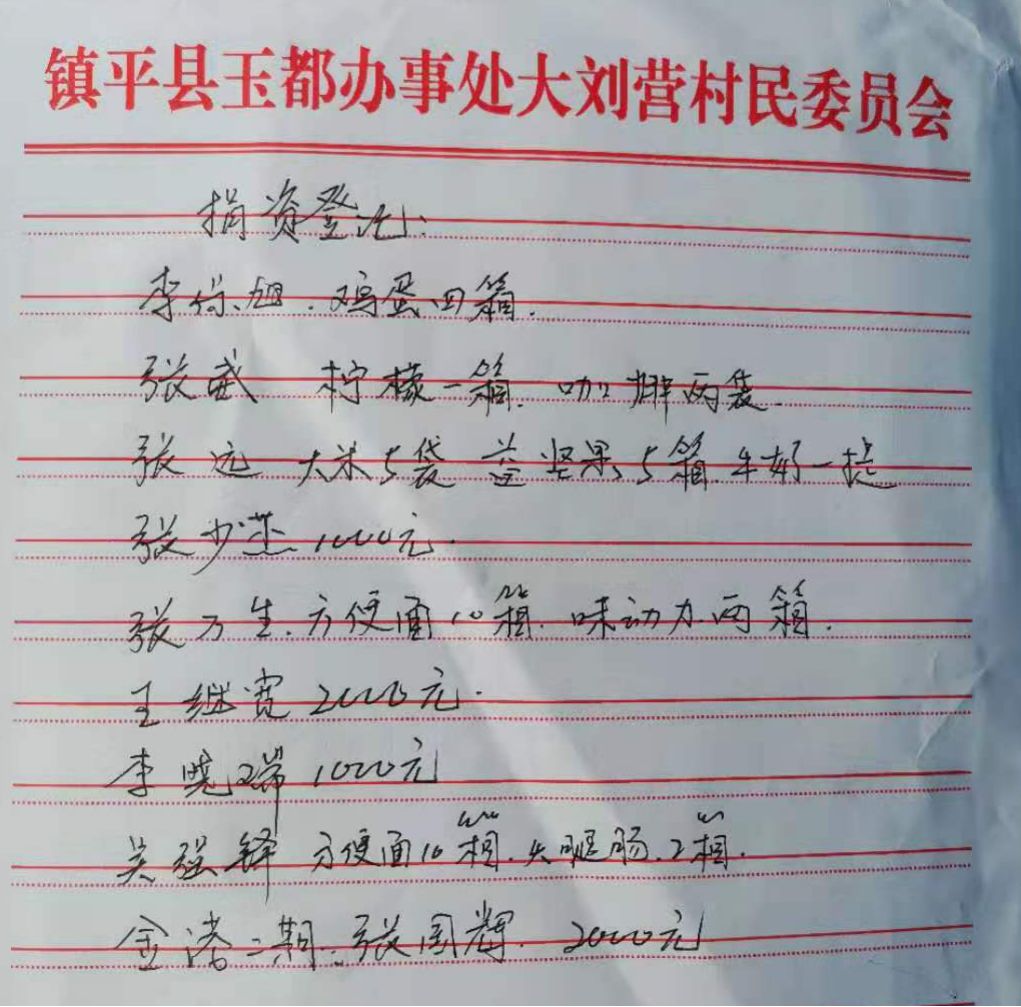 镇平县玉都办事处大刘营村民委员会
捐资登记:
李保旭.鸡蛋四箱.
张武 柠檬一箱.咖啡两袋.
张远 大米5袋 坚果5箱.牛奶一提
张少 1000元.
张万生.方便面10箱.味动力两箱.
王继宽2000元.
李晓瑞1000元
吴强锋 方便面10箱.火腿肠.2箱.
金港二期:张国辉.2000元